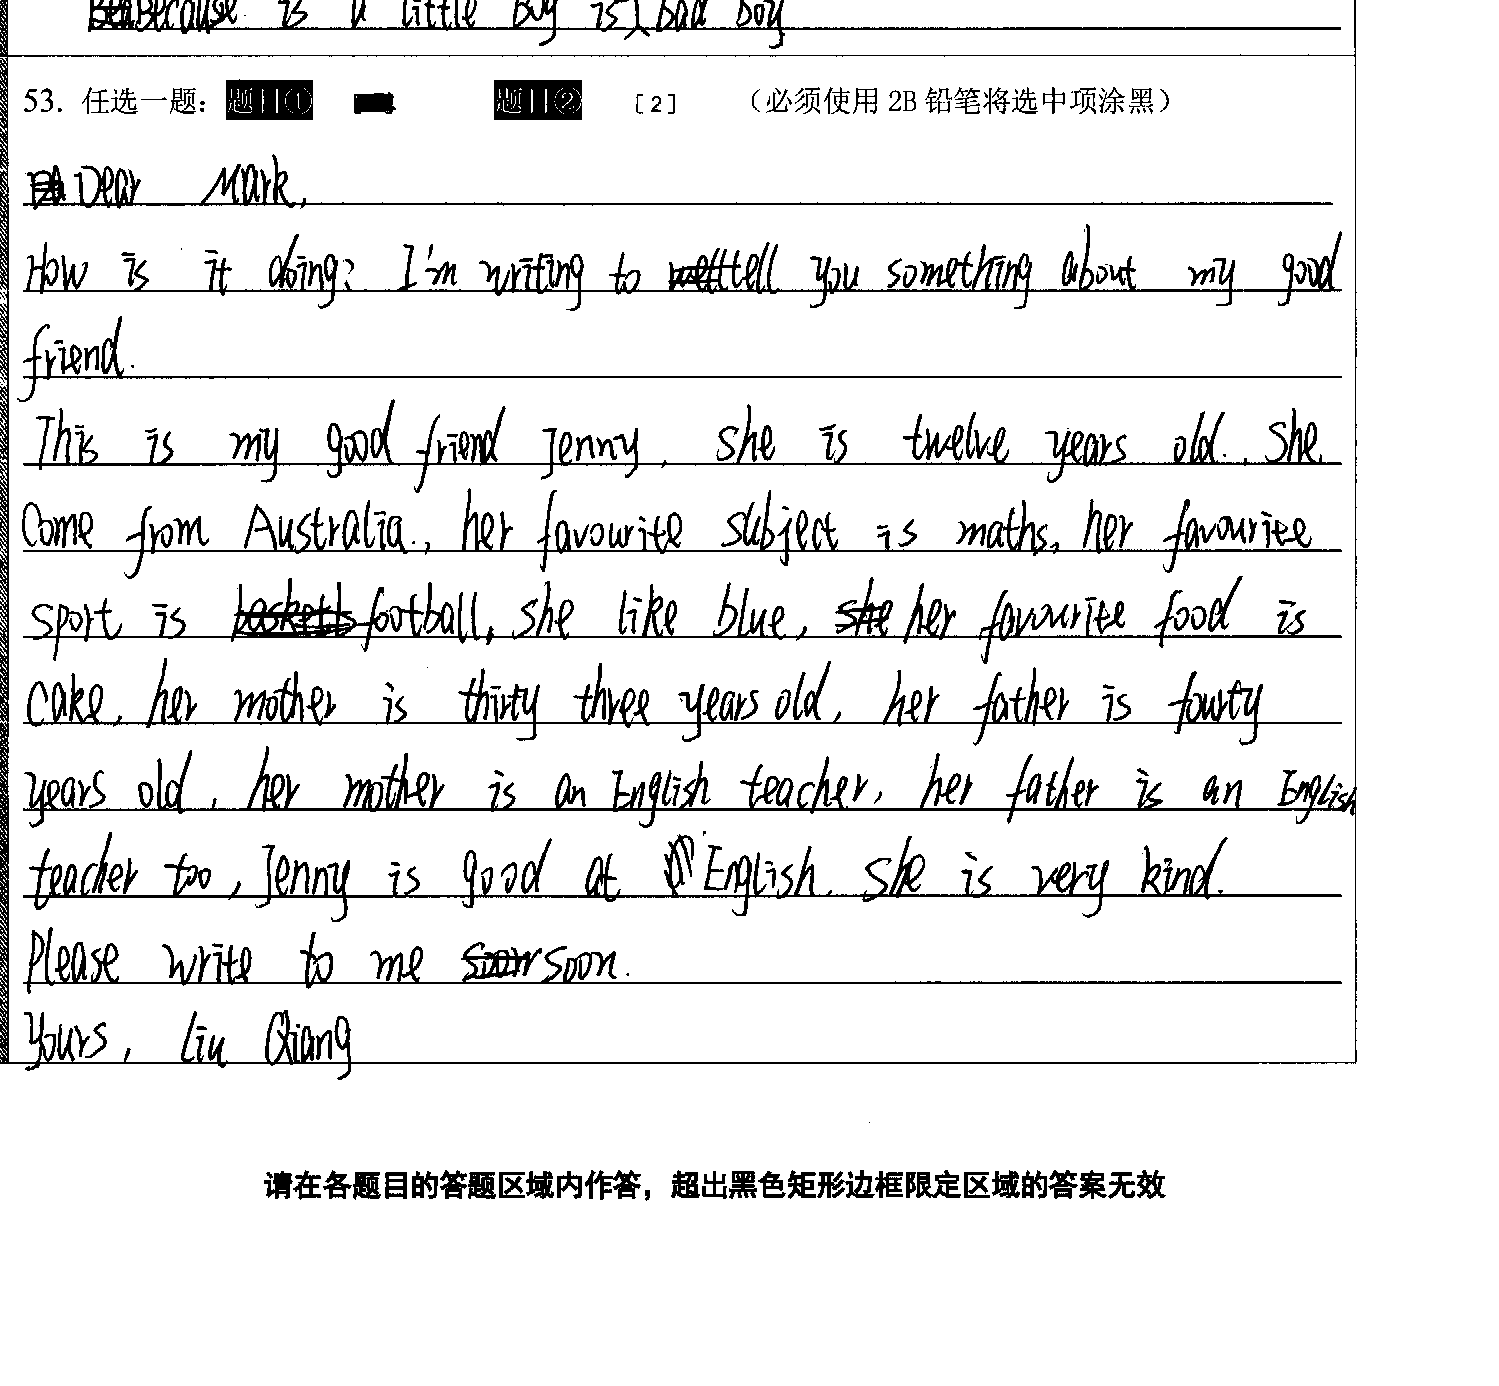 Because is a little boy is bad boy
53. 任选一题： 题目① 题目② [2] （必须使用 2B 铅笔将选中项涂黑）
Dear Mark,
How is it doing? I'm writing to tell you something about my good
friend.
This is my good friend Jenny, she is twelve years old. She
Come from Australia., her favourite subject is maths, her favourite
sport is football, she like blue, her favourite food is
cake, her mother is thirty three years old, her father is fourty
years old, her mother is an English teacher, her father is an English
teacher too, Jenny is good at English. She is very kind.
Please write to me soon.
Yours, Liu Qiang
请在各题目的答题区域内作答，超出黑色矩形边框限定区域的答案无效